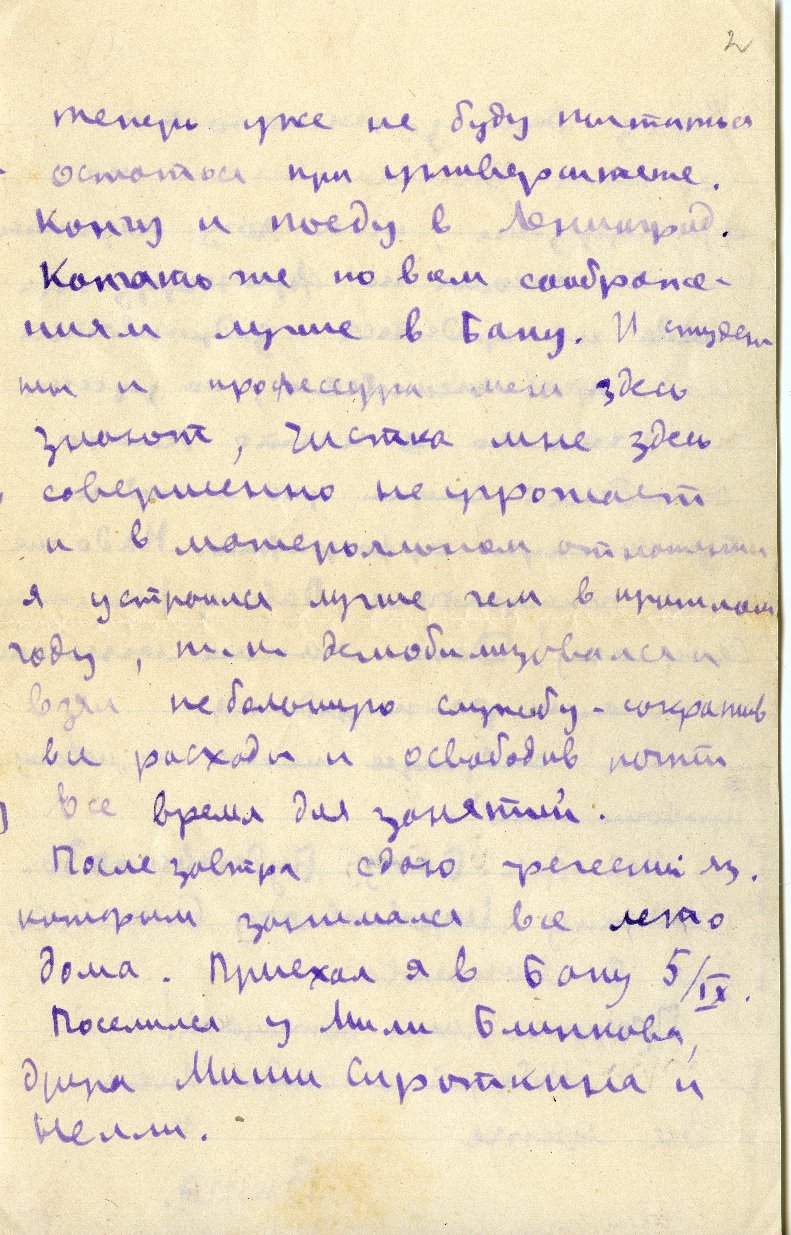 2
теперь уже не буду пытаться
остаться при университете.
Кончу и поеду в Ленинград.
Кончать же по всем соображе-
ниям лучше в Баку. И студен
ты и профессура меня здесь
знают, чистка мне здесь
совершенно не угрожает
и в матерьяльном отношении
я устроился лучше чем в прошлом
году, т.к. демобилизовался и
взял небольшую службу - сократив
все расходы и освободив почти
все время для занятий.
Послезавтра сдаю греческий яз.
которым занимался все лето
дома. Приехал я в Баку 5/IX.
Поселился у Мили Блинкова,
друга Миши Сироткина и
Нелли.